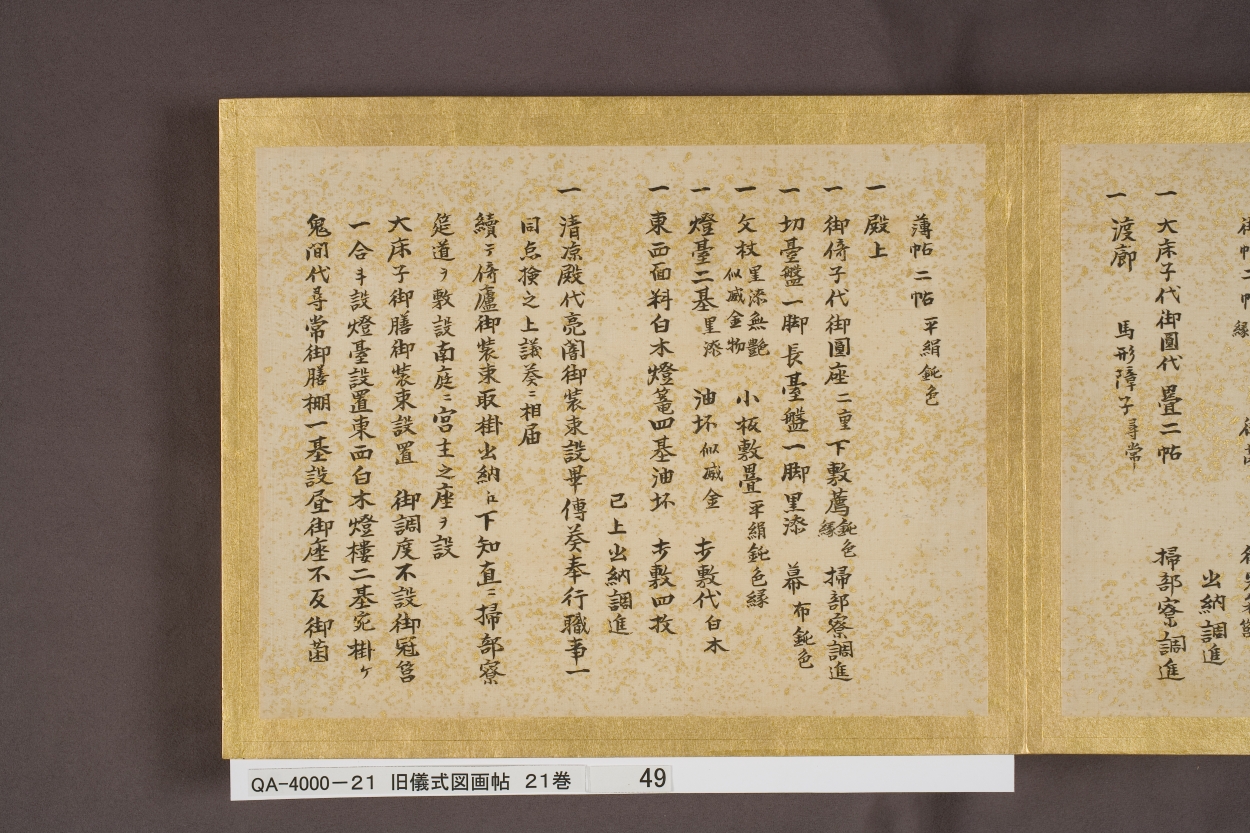 御帖二帖
一 大床子代御圓代 疊二帖 掃部寮調進
出納調進
一 渡廊 馬形障子 尋常
薄帖二帖 平絹鈍色
一 殿上
一 御倚子代御圓座 二重 下敷薦 鈍色縁 掃部寮調進
一 切臺盤一脚 長臺盤一脚 里漆 幕 布鈍色
一 文杖 里漆無艶 似威金物 小板敷疊 平絹鈍色縁
一 燈臺二基 里漆 油坏 似威金 步敷代 白木
一 東西面料白木燈篭四基油坏 步敷四枚
已上出納調進
一 清凉殿代亮闇御装束設畢傳奏奉行職事一
同点検之上議奏ニ相届
續テ倚廬御装束取掛出納ゟ下知直ニ掃部寮
筵道ヲ敷設南庭ニ宮主之座ヲ設
大床子御膳御装束設置 御調度不設御冠筥
一合ヰ設燈臺設置東西白木燈樓二基宛掛ケ
鬼間代尋常御膳棚一基設昼御座不及御茵
QA-4000-21 旧儀式図画帖 21巻 49